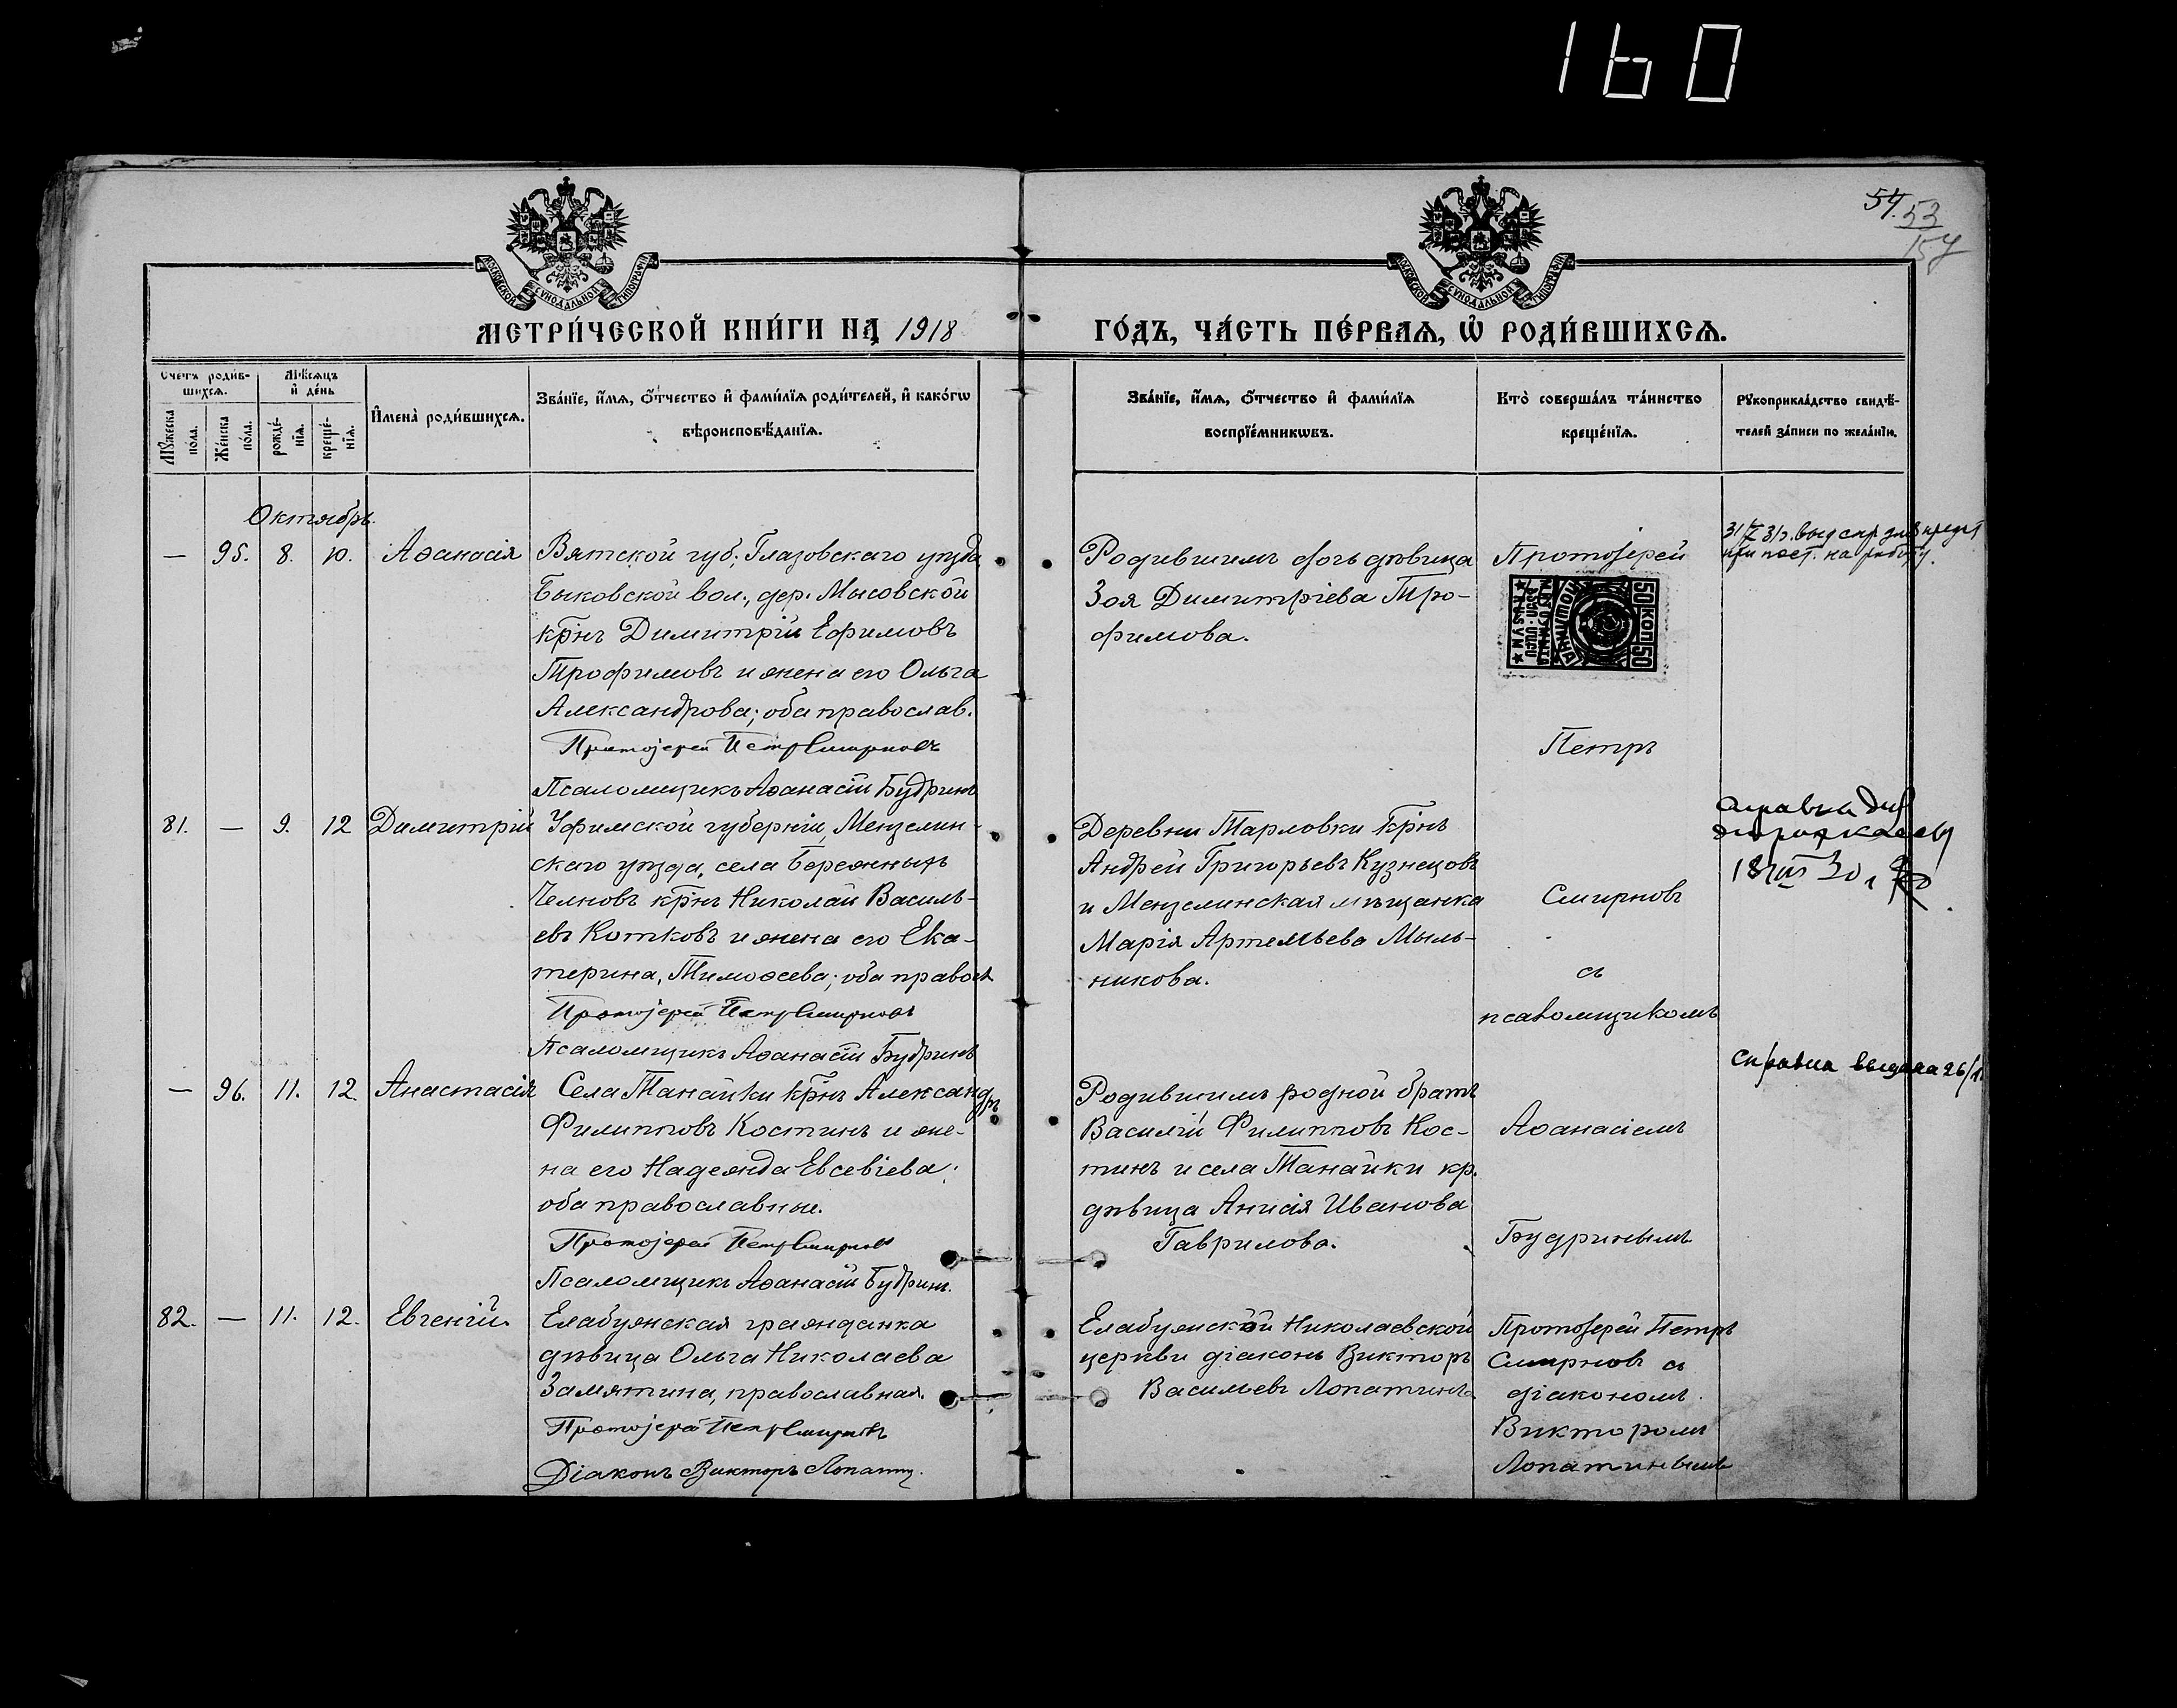 160
54. 53
157
МОСКОВСКОЙ СУНОДАЛЬНОЙ ТИПОГРАФІИ
МОСКОВСКОЙ СУНОДАЛЬНОЙ ТИПОГРАФІИ
МЕТРИ́ЧЕСКОЙ КНИ́ГИ НА 1918
ГО́ДЪ, ЧА́СТЬ ПЕ́РВАѦ, Ѡ РОДИ́ВШИХСѦ.
Счетъ роди́в-
шихсѧ.
Мѣ́сѧцъ
и҆ де́нь
Мꙋ́жеска
по́ла.
Же́нска
по́ла.
рожде́-
нїѧ.
креще́-
нїѧ.
И҆мена̀ роди́вшихсѧ.
Зва́нїе, и҆́мѧ, ѻ҆́тчество и҆ фами́лїѧ роди́телей, и҆ како́гѡ
вѣроисповѣ́данїѧ.
Зва́нїе, и҆́мѧ, ѻ҆́тчество и҆ фами́лїѧ
воспрїе́мникѡвъ.
Кто̀ соверша́лъ та́инство
креще́нїѧ.
Рꙋкоприкла́дство свидѣ́-
телей за́писи по жела́нїю.
Октябрь.
— 95. 8. 10. Аѳанасія
Вятской губ., Глазовскаго уѣзда
Быковской вол., дер. Мысовской
крнъ Димитрій Ефимовъ
Трофимовъ и жена его Ольга
Александрова; оба православ.
Протоіерей Петръ Смирновъ
Псаломщикъ Аѳанасій Будринъ
Родившимъ дочь дѣвица
Зоя Димитріева Тро-
фимова.
Протоіерей
50 КОП 50
Петръ
при пост. на работу.
81. — 9. 12 Димитрій
Уфимской губерніи, Мензелин-
скаго уѣзда, села Бережныхъ
Челновъ крнъ Николай Василь-
евъ Котковъ и жена его Ека-
терина Тимоѳеева; оба правосл
Протоіерей Петръ Смирновъ
Псаломщикъ Аѳанасій Будринъ
Деревни Тарловки крнъ
Андрей Григорьевъ Кузнецовъ
и Мензелинская мѣщанка
Марія Артемьева Мыль-
никова.
Смирновъ
съ
псаломщикомъ
справка
18/III 30 г
— 96. 11. 12. Анастасія
Села Танайки крнъ Александръ
Филипповъ Костинъ и же-
на его Надежда Евсевіева;
оба православные.
Протоіерей Петръ Смирновъ
Псаломщикъ Аѳанасій Будринъ.
Родившимъ родной братъ
Василій Филипповъ Кос-
тинъ и села Танайки кр.
дѣвица Анисія Иванова
Гаврилова.
Аѳанасіемъ
Будринымъ
Справка выдана 26/1
82. — 11. 12. Евгеній
Елабужская гражданка
дѣвица Ольга Николаева
Замятина, православная.
Протоіерей Петръ Смирновъ
Діаконъ Викторъ Лопатин.
Елабужской Николаевской
церкви діаконъ Викторъ
Васильевъ Лопатинъ
Протоіерей Петръ
Смирновъ съ
діакономъ
Викторомъ
Лопатинымъ